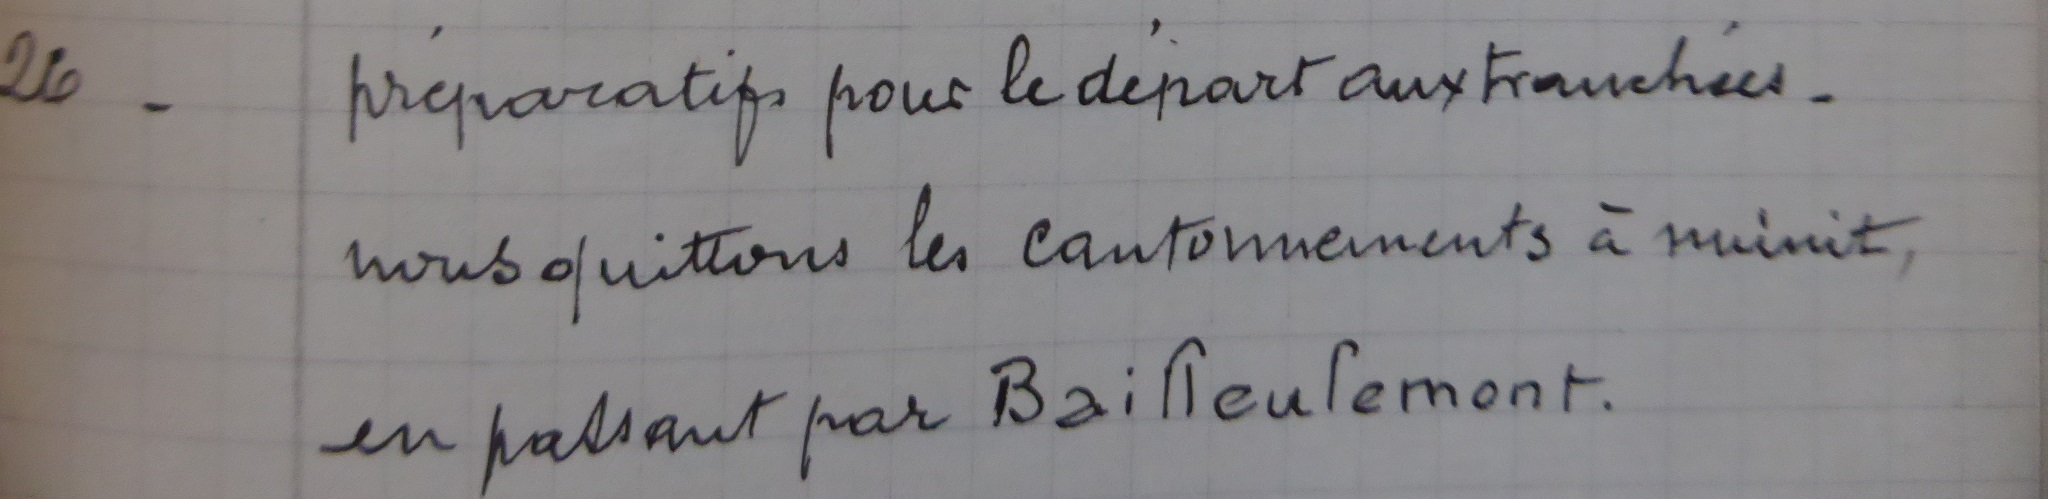 26 - préparatifs pour le départ aux tranchées -
nous quittons les cantonnements à minuit,
en passant par Bailleulemont.